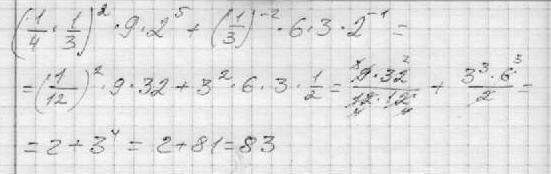 (1/4 · 1/3)² · 9 · 2⁵ + (1/3)⁻² · 6 · 3 · 2⁻¹ =
= (1/12)² · 9 · 32 + 3² · 6 · 3 · 1/2 = 9 · 32 ² / 12 · 12 + 3³ · 6 ³ / 2 =
= 2 + 3⁴ = 2 + 81 = 83